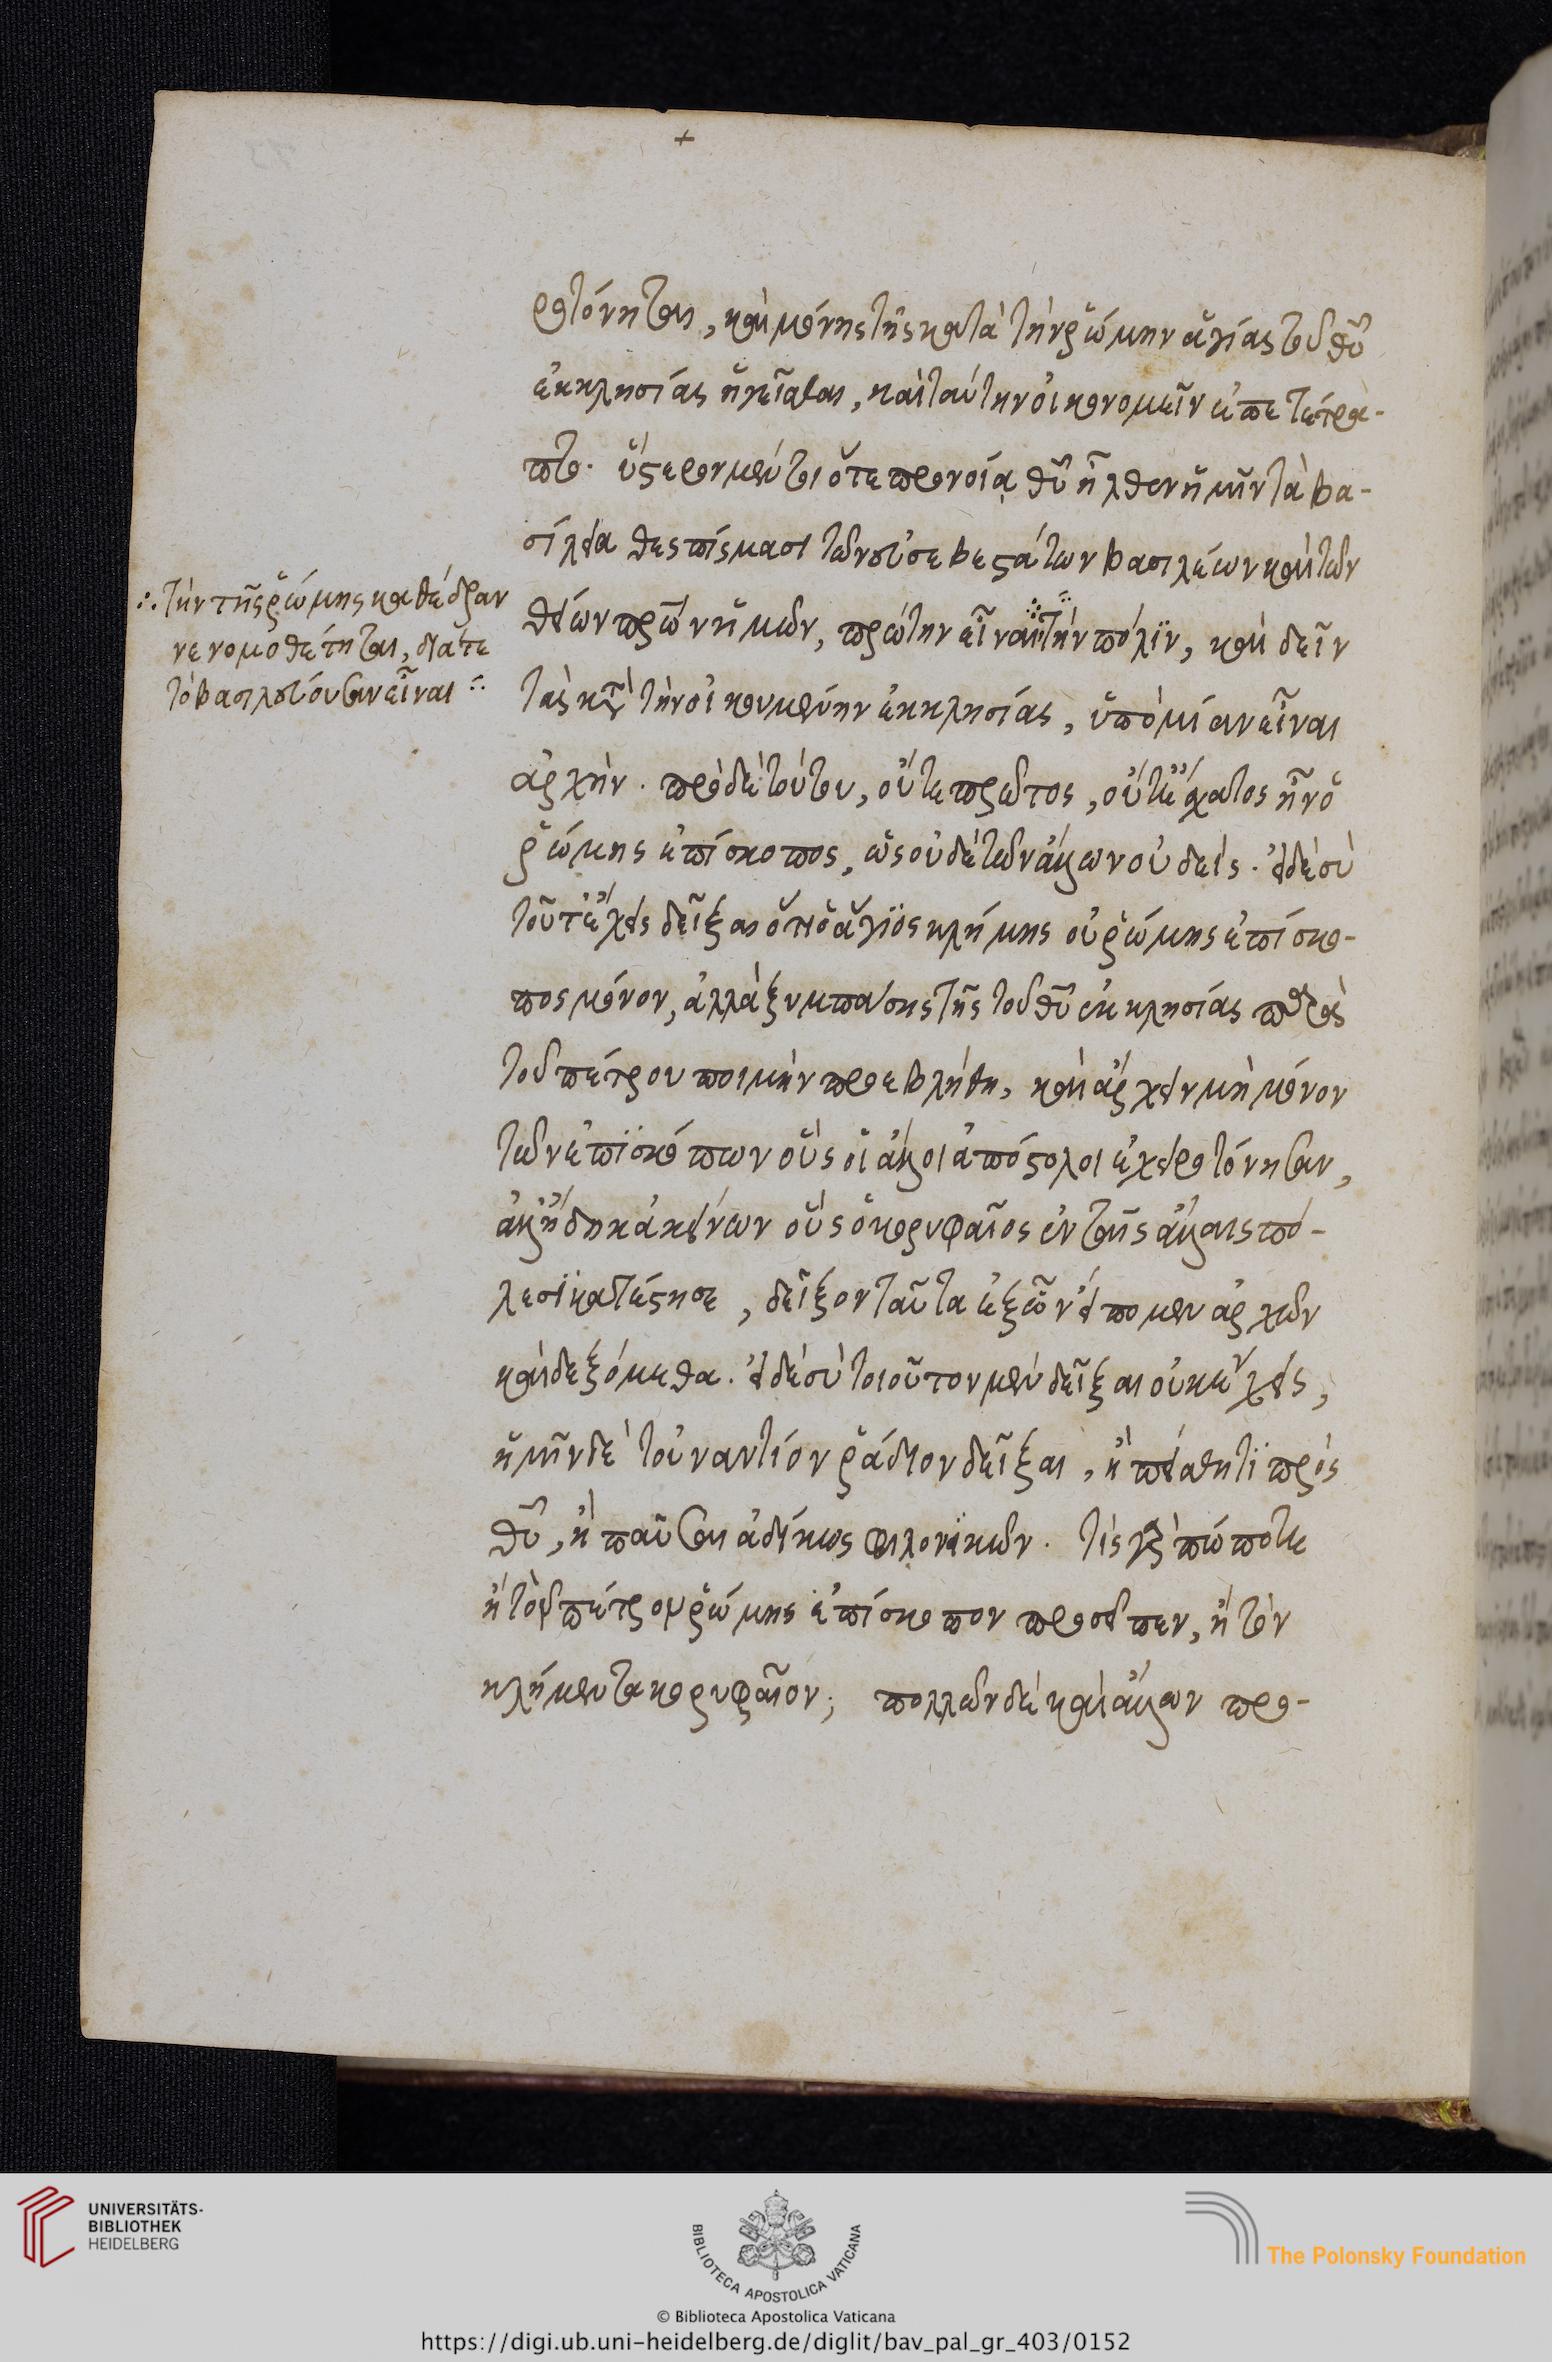 +
ροτόνηται, καὶ μόνης τῆς κατὰ τὴν ῥώμην ἁγίας τοῦ θῦ
ἐκκλησίας ἡγεῖσθαι, καὶ ταύτην οἰκονομεῖν ἐπετέτρα-
πτο. ὕστερον μέντοι ὅτε προνοίᾳ θῦ ἦλθεν ἡμῖν τὰ βα-
σίλεια θεσπίσμασι τῶν εὐσεβεστάτων βασιλέων καὶ τῶν
θείων πρῶν ἡμῶν, πρώτην εἶναι ⁘ τὴν πόλιν, καὶ δεῖν
τὰς κατὰ τὴν οἰκουμένην ἐκκλησίας, ὑπὸ μίαν εἶναι
ἀρχήν. πρὸ δὲ τούτου, οὔτε πρῶτος, οὔτ' ἔσχατος ἦν ὁ
ῥώμης ἐπίσκοπος, ὡς οὐδὲ τῶν ἄλλων οὐδείς. εἰ δὲ σὺ
τοῦτ' ἔχεις δεῖξαι ὅτι ὁ ἅγιος κλήμης οὐ ῥώμης ἐπίσκο-
πος μόνον, ἀλλὰ ξυμπάσης τῆς τοῦ θῦ ἐκκλησίας παρὰ
τοῦ πέτρου ποιμὴν προεβλήθη, καὶ ἄρχειν μὴ μόνον
τῶν ἐπισκόπων οὓς οἱ ἄλλοι ἀπόστολοι ἐχειροτόνησαν,
ἀλλ' ἤδη κἀκείνων οὓς ὁ κορυφαῖος ἐν ταῖς ἄλλαις πό-
λεσι κατέστησε, δεῖξον ταῦτα ἐξ ὧν εἵπομεν ἀρχῶν
καὶ δεξόμεθα. εἰ δὲ σὺ τοιοῦτον μὲν δεῖξαι οὐκ ἔχεις,
ἡμῖν δὲ τοὐναντίον ῥάδιον δεῖξαι, ἢ πείσθητι πρὸς
θῦ, ἢ παῦσαι ἀδίκως φιλονεικῶν. τίς γὰρ πώποτε
ἢ τὸν πέτρον ῥώμης ἐπίσκοπον προσεῖπεν, ἢ τὸν
κλήμεντα κορυφαῖον; πολλῶν δὲ καὶ ἄλλων προ-
⁘ τὴν τῆς ῥώμης καθέδραν
νενομοθέτηται, διά τε
τὸ βασιλεύουσαν εἶναι ⁘
UNIVERSITÄTS-
BIBLIOTHEK
HEIDELBERG
BIBLIOTECA APOSTOLICA VATICANA
The Polonsky Foundation
© Biblioteca Apostolica Vaticana
https://digi.ub.uni-heidelberg.de/diglit/bav_pal_gr_403/0152